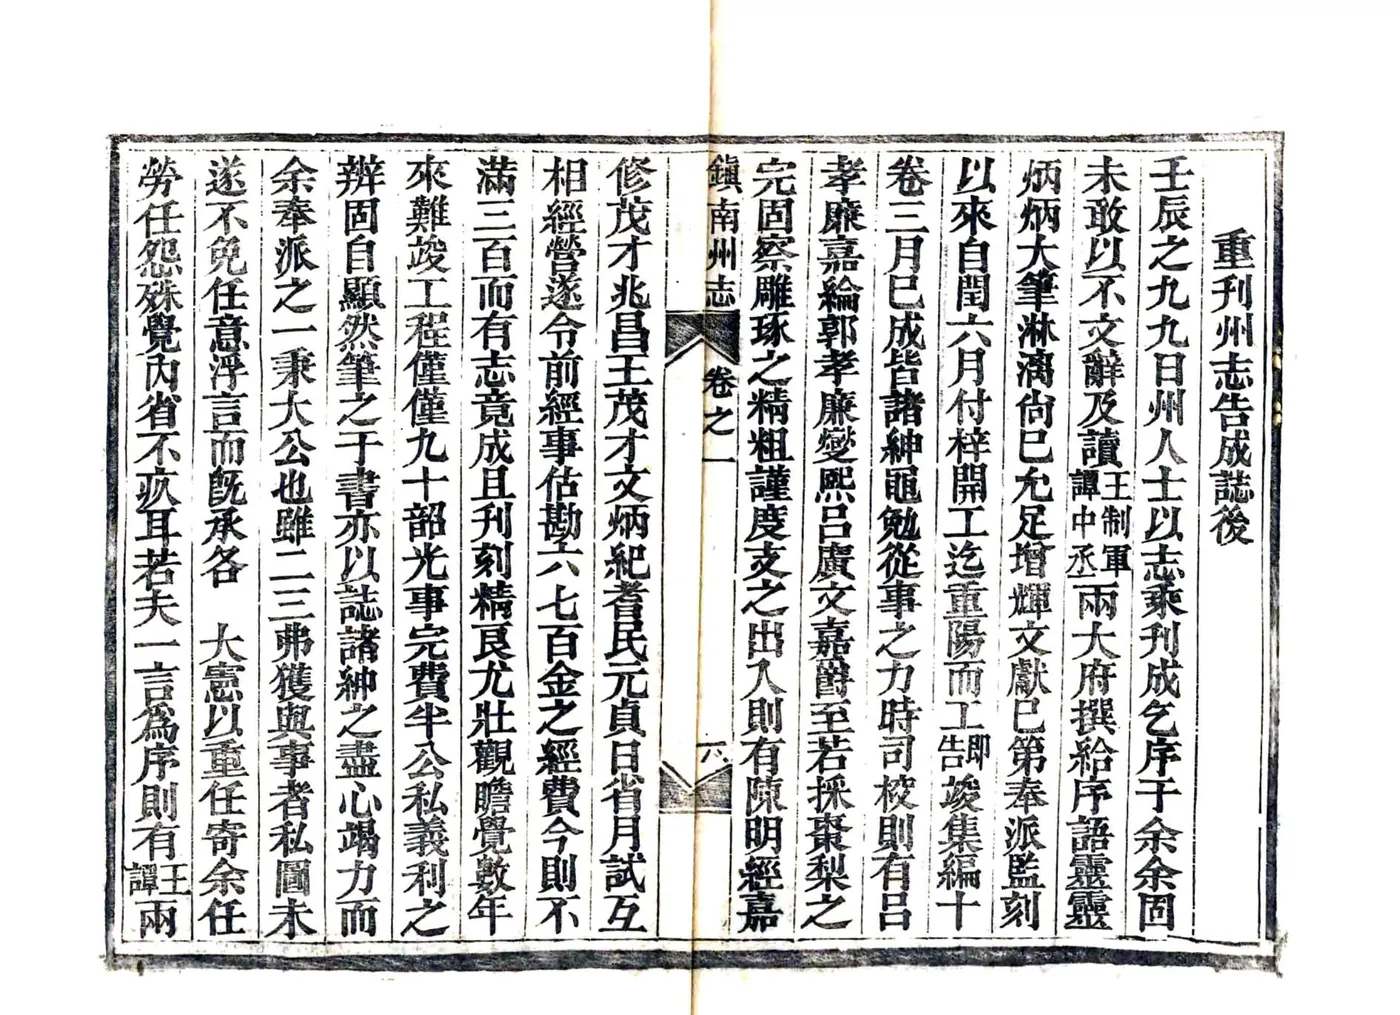 重刊州志告成誌後
壬辰之九九日州人士以志乘刊成乞序于余余固
未敢以不文辭及讀王制軍譚中丞兩大府撰給序語靈靈
炳炳大筆淋漓尙已允足增輝文獻已第奉派監刻
以來自閏六月付梓開工迄重陽而工即告竣集編十
卷三月已成皆諸紳黽勉從事之力時司校則有呂
孝廉嘉綸郭孝廉燮熙呂廣文嘉爵至若採棗梨之
完固察雕琢之精粗謹度支之出入則有陳明經嘉
鎮南州志 卷之一 六
修茂才兆昌王茂才文炳紀耆民元貞日省月試互
相經營遂令前經事估勘六七百金之經費今則不
滿三百而有志竟成且刊刻精良尤壯觀瞻覺數年
來難竣工程僅僅九十韶光事完費半公私義利之
辨固自顯然筆之于書亦以誌諸紳之盡心竭力而
余奉派之一秉大公也雖二三弗獲與事者私圖未
遂不免任意浮言而旣承各 大憲以重任寄余任
勞任怨殊覺內省不疚耳若夫一言爲序則有王譚兩